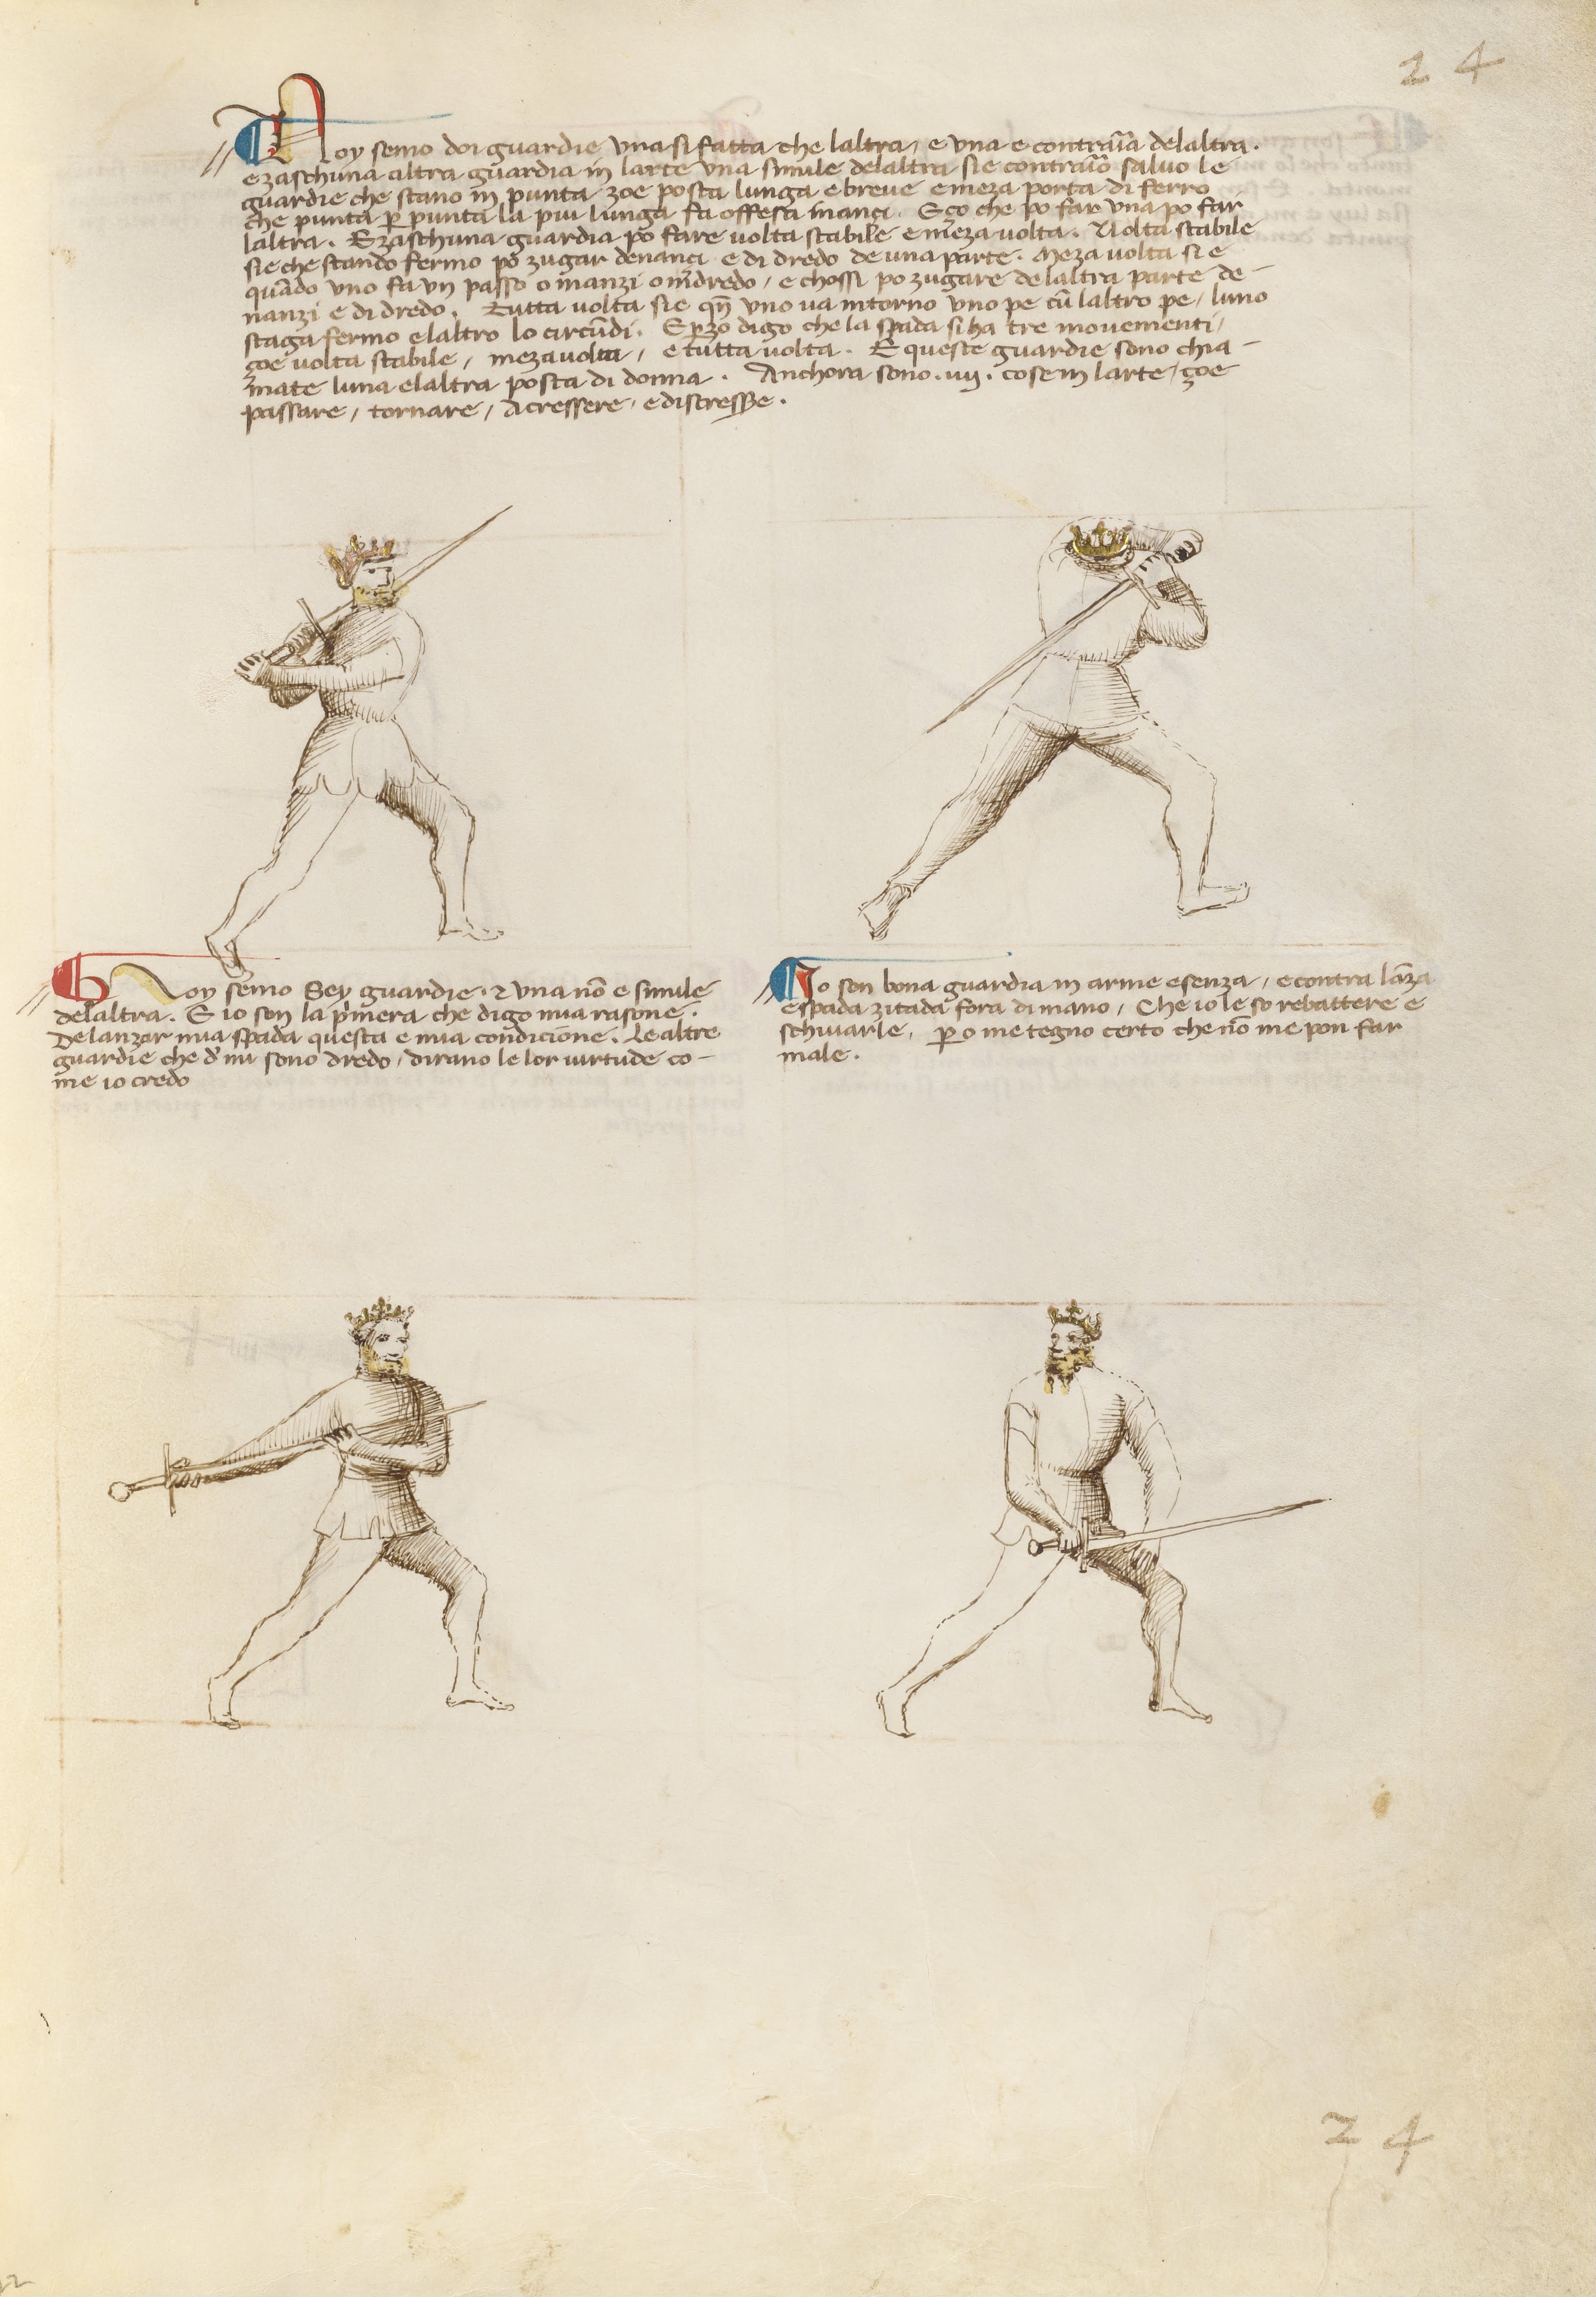 24
Noy semo doi guardie una si fatta che laltra, e una e contraria delaltra.
e zaschuna altra guardia in larte una simile delaltra sie contrario salvo le
guardie che stano in punta zoe posta lunga e breve e meza porta di ferro
che punta per punta la piu lunga fa offesa inanci. E ço che po far una po far
laltra. E zaschuna guardia po fare volta stabile e meza volta. Volta stabile
sie che stando fermo po zugar denanci e di dredo de una parte. Meza volta si e
quando uno fa un passo o inanzi o indredo, e chossi po zugare de laltra parte de-
nanzi e di dredo. Tutta volta sie qñ uno va intorno uno pe cū laltro pe, luno
staga fermo e laltro lo circūdi. E perzo digo che la spada si ha tre movementi,
zoe volta stabile, meza volta, e tutta volta. E queste guardie sono chia-
mate luna e laltra posta di donna. Anchora sono .iiij. cose in larte, zoe
passare, tornare, acressere, e discresse.
Noy semo Sey guardie. & una nō e simile
delaltra. E io son la p'mera che digo mia rasone.
De lanzar mia spada questa e mia condicione. Le altre
guardie che d' mi sono dredo, dirano le lor virtude co-
me io credo
Io son bona guardia in arme e senza, e contra lāza
e spada zitada fora di mano, Che io le so rebattere e
schivarle, pero me tegno certo che nō me pon far
male.
24